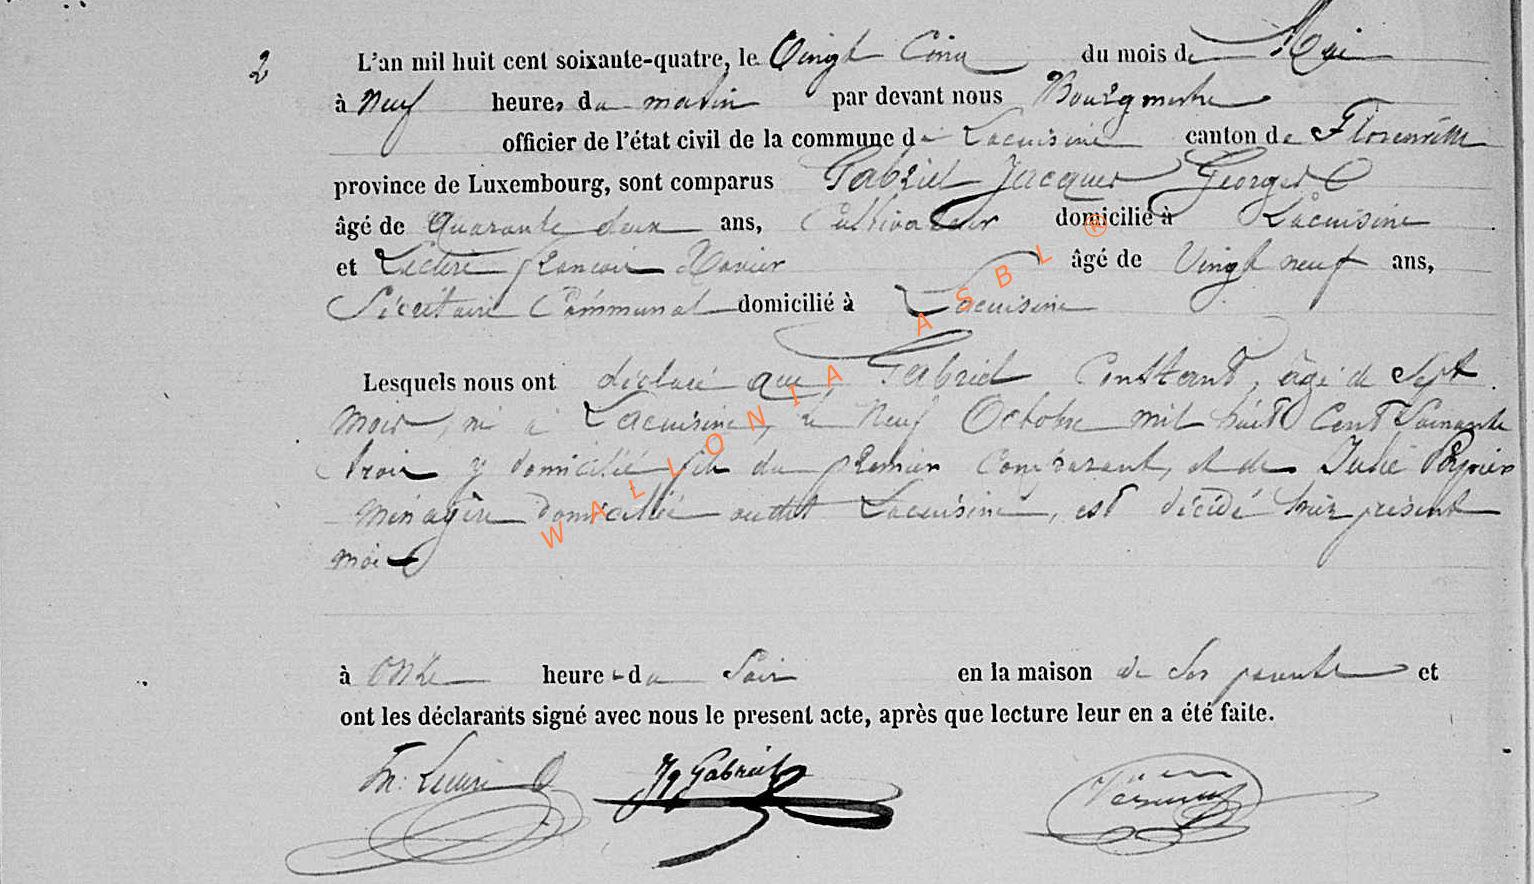 2 L'an mil huit cent soixante-quatre, le Vingt Cinq du mois de Mai
à Neuf heures du matin par devant nous Bourgmestre
officier de l'état civil de la commune de Lacuisine canton de Florenville
province de Luxembourg, sont comparus Gabriel Jacques Georges
âgé de Quarante deux ans, Cultivateur domicilié à Lacuisine
et Leclere francois Xavier âgé de Vingt neuf ans,
Sécrétaire Communal domicilié à Lacuisine
Lesquels nous ont déclaré que Gabriel Constant, âgé de Sept
mois, né à Lacuisine, le Neuf Octobre mil huit Cent Soixante
trois y domicilié fils du premier Comparant, et de Julie
Ménagère domiciliée audit Lacuisine, est décédé hier présent
mois
à onze heures du Soir en la maison de Ses parents et
ont les déclarants signé avec nous le present acte, après que lecture leur en a été faite.
Jq Gabriel
WALLONIA ASBL ®